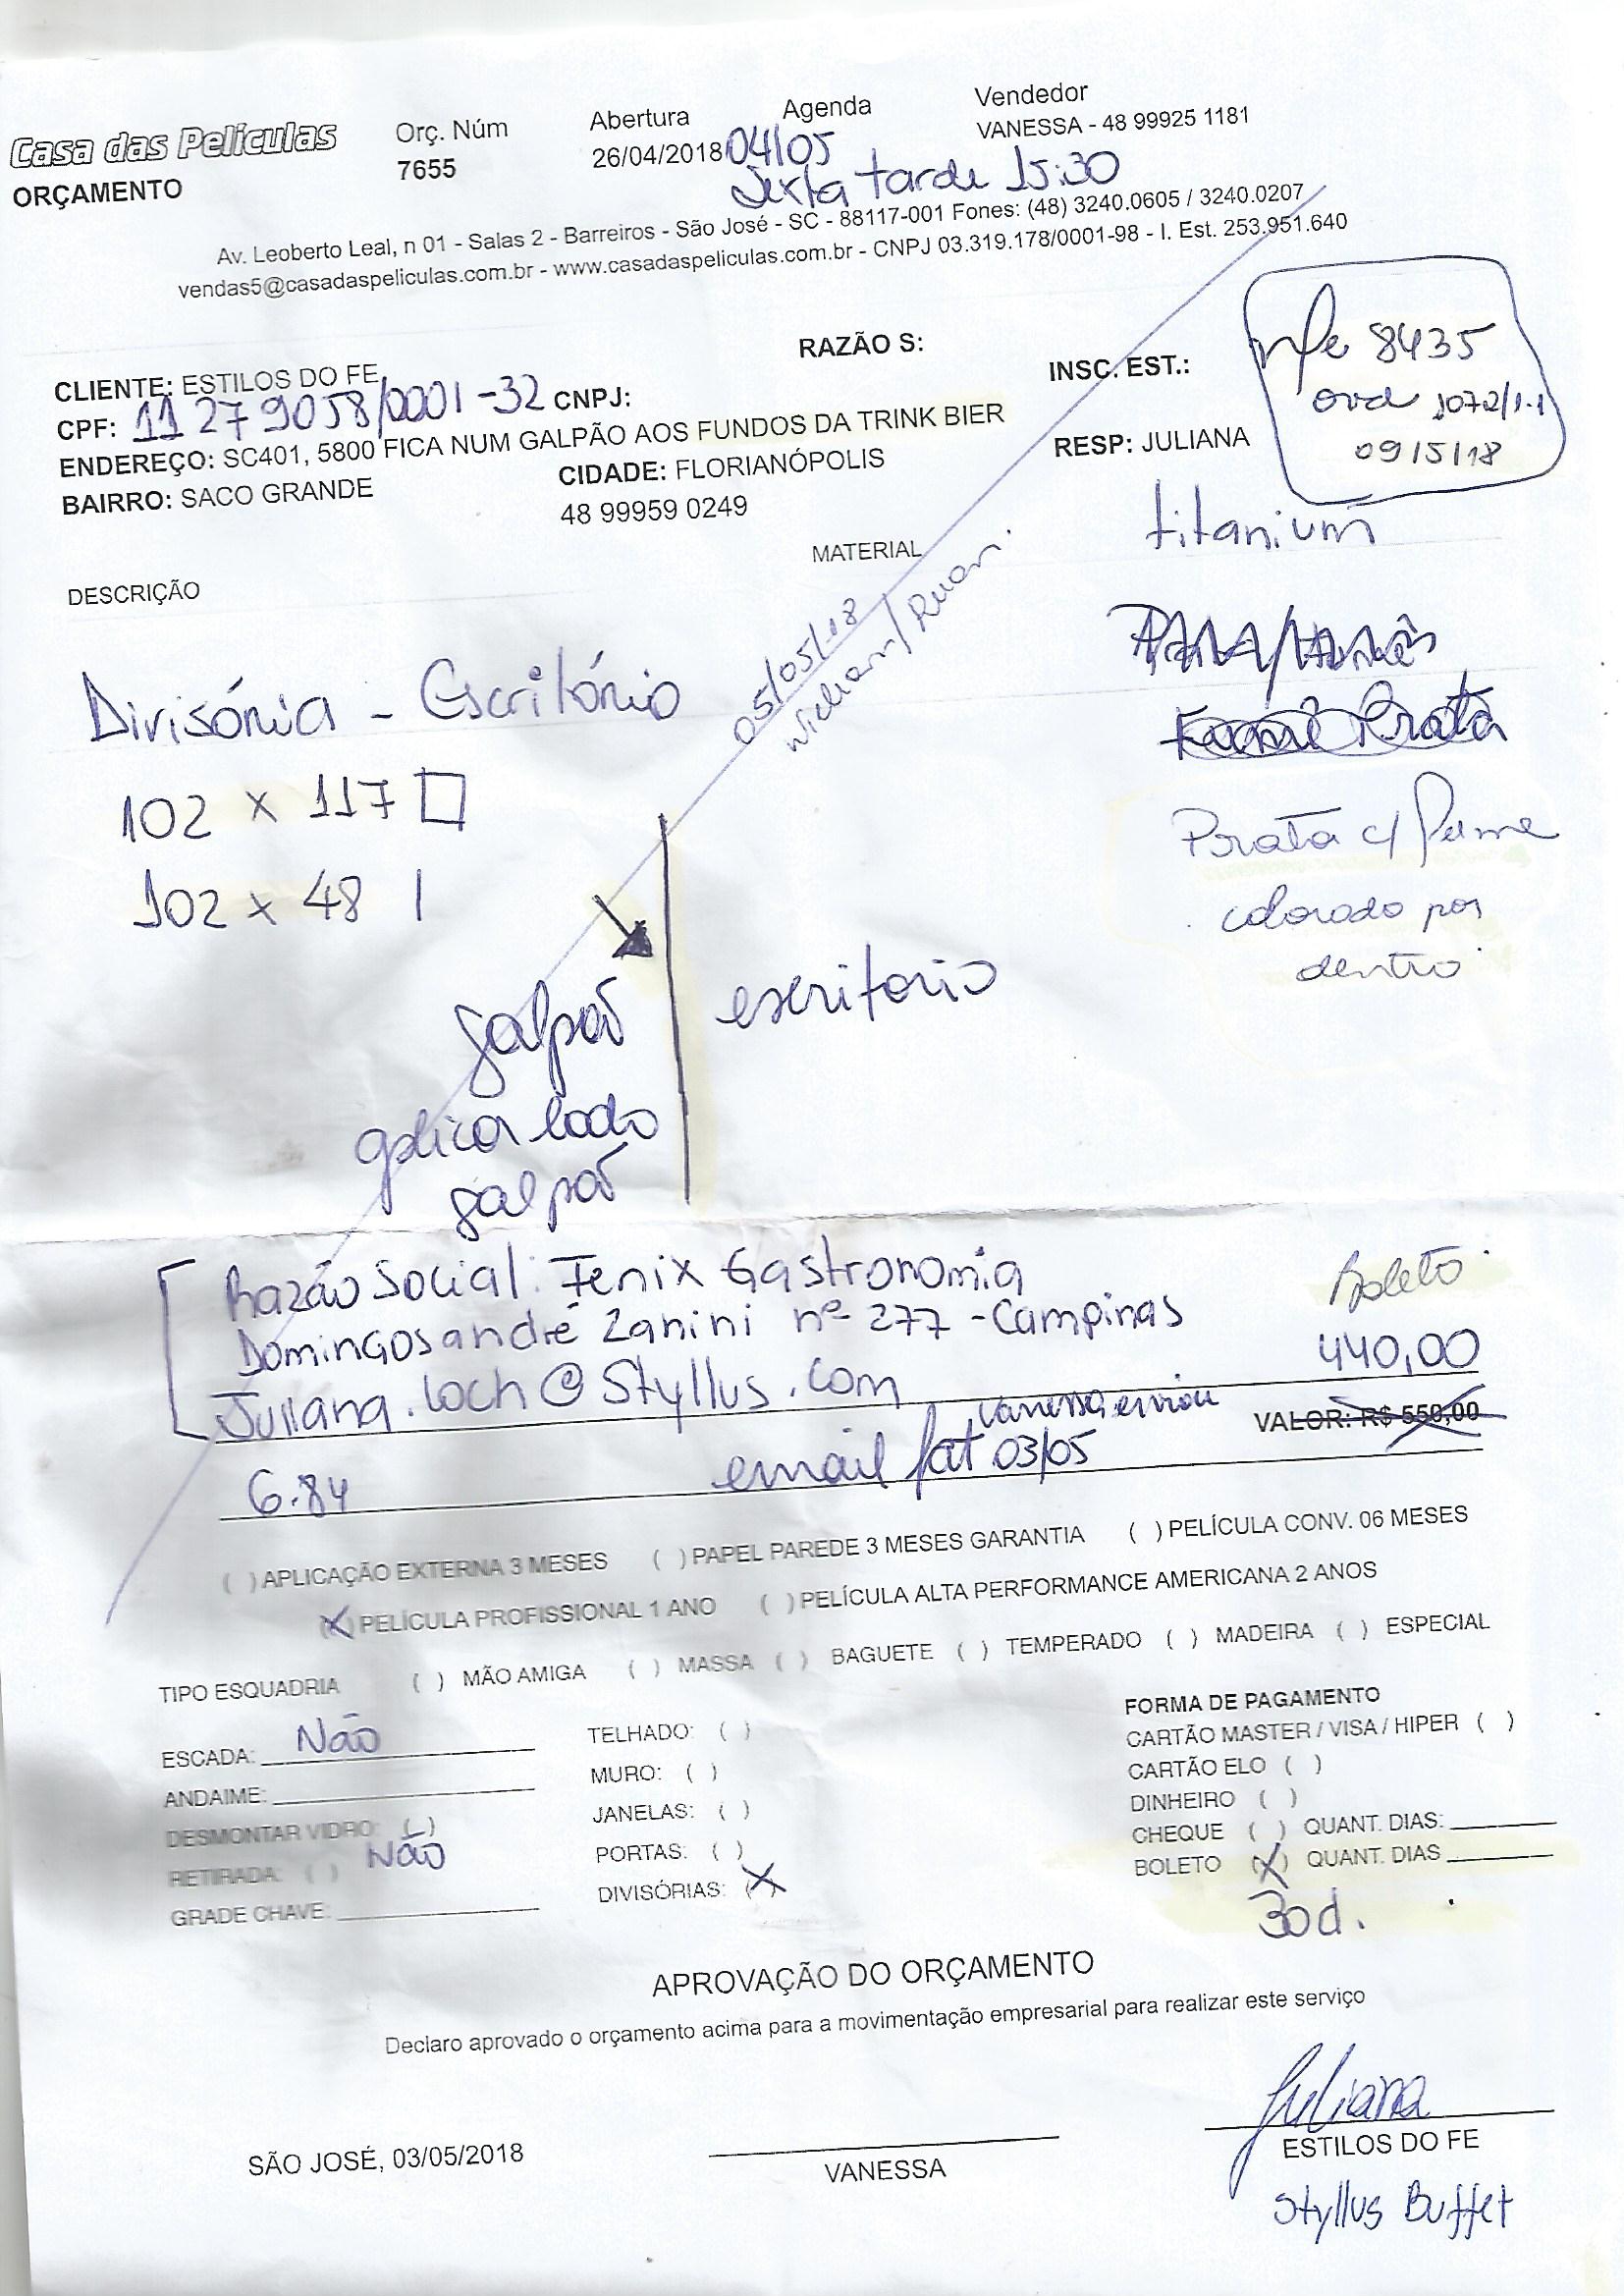 Casa das Películas
ORÇAMENTO
Orç. Núm
7655
Abertura
26/04/2018
Agenda
04/05
Sexta tarde 15:30
Vendedor
VANESSA - 48 99925 1181
Av. Leoberto Leal, n 01 - Salas 2 - Barreiros - São José - SC - 88117-001 Fones: (48) 3240.0605 / 3240.0207
vendas5@casadaspeliculas.com.br - www.casadaspeliculas.com.br - CNPJ 03.319.178/0001-98 - I. Est. 253.951.640
CLIENTE: ESTILOS DO FE
RAZÃO S:
CPF: 11 279058/0001-32 CNPJ:
INSC. EST.:
ENDEREÇO: SC401, 5800 FICA NUM GALPÃO AOS FUNDOS DA TRINK BIER
RESP: JULIANA
BAIRRO: SACO GRANDE
CIDADE: FLORIANÓPOLIS
48 99959 0249
nfe 8435
1072/1-1
09/5/18
titanium
DESCRIÇÃO
MATERIAL
05/05/18
Divisória - Escritório
Fumê Prata
102 x 117
102 x 48
Prata c/ fume
colorado por
dentro
galpão
escritorio
aplicar lado
galpão
Razão Social: Fenix Gastronomia
Domingos andré Zanini nº 277 - Campinas
Juliana.loch@Styllus.com
Boleto
440,00
VALOR: R$ 550,00
Vanessa enviou
email fat 03/05
6.84
( ) APLICAÇÃO EXTERNA 3 MESES ( ) PAPEL PAREDE 3 MESES GARANTIA ( ) PELÍCULA CONV. 06 MESES
(X) PELÍCULA PROFISSIONAL 1 ANO ( ) PELÍCULA ALTA PERFORMANCE AMERICANA 2 ANOS
TIPO ESQUADRIA ( ) MÃO AMIGA ( ) MASSA ( ) BAGUETE ( ) TEMPERADO ( ) MADEIRA ( ) ESPECIAL
ESCADA: Não
ANDAIME:
DESMONTAR VIDRO: ( )
RETIRADA: ( ) Não
GRADE CHAVE:
TELHADO: ( )
MURO: ( )
JANELAS: ( )
PORTAS: ( )
DIVISÓRIAS: (X)
FORMA DE PAGAMENTO
CARTÃO MASTER / VISA / HIPER ( )
CARTÃO ELO ( )
DINHEIRO ( )
CHEQUE ( ) QUANT. DIAS:
BOLETO (X) QUANT. DIAS
30d.
APROVAÇÃO DO ORÇAMENTO
Declaro aprovado o orçamento acima para a movimentação empresarial para realizar este serviço
SÃO JOSÉ, 03/05/2018
VANESSA
Juliana
ESTILOS DO FE
Styllus Buffet